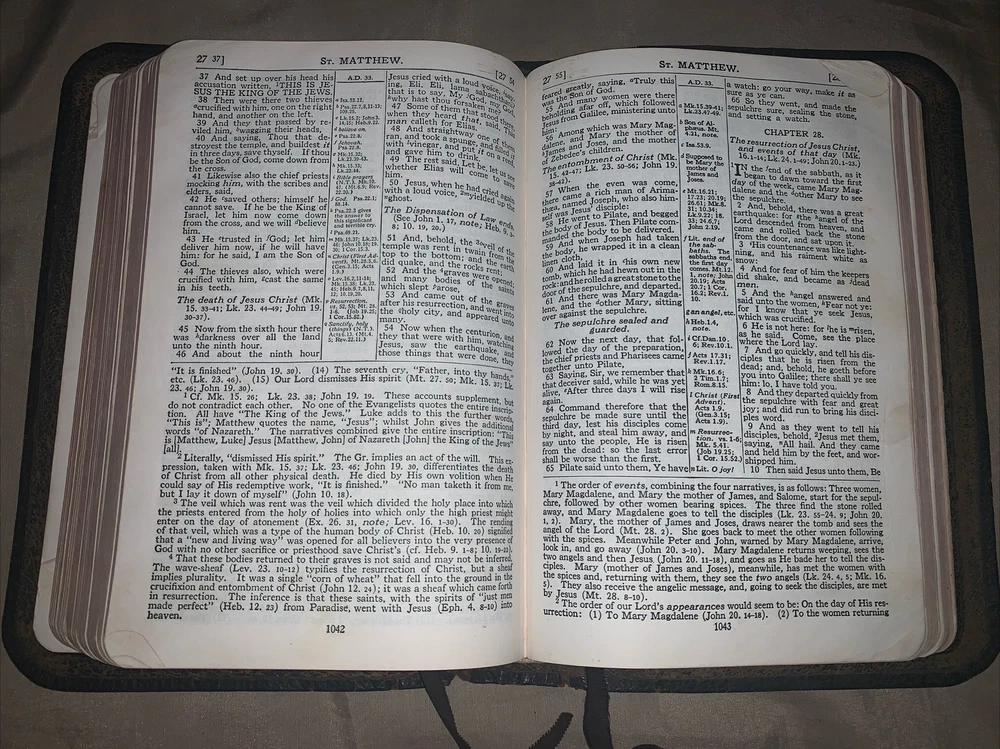 27 37]
ST. MATTHEW.
[27 54
37 And set up over his head his
accusation written, THIS IS JE-
SUS THE KING OF THE JEWS.
38 Then were there two thieves
crucified with him, one on the right
hand, and another on the left.
39 And they that passed by re-
viled him, wagging their heads,
40 And saying, Thou that de-
stroyest the temple, and buildest it
in three days, save thyself. If thou
be the Son of God, come down from
the cross.
41 Likewise also the chief priests
mocking him, with the scribes and
elders, said,
42 He saved others; himself he
cannot save. If he be the King of
Israel, let him now come down
from the cross, and we will believe
him.
43 He trusted in God; let him
deliver him now, if he will have
him: for he said, I am the Son of
God.
44 The thieves also, which were
crucified with him, cast the same
in his teeth.
The death of Jesus Christ (Mk.
15. 33-41; Lk. 23. 44-49; John 19.
30-37).
45 Now from the sixth hour there
was darkness over all the land
unto the ninth hour.
46 And about the ninth hour
A.D. 33.
Jesus cried with a loud voice, say-
ing, Eli, Eli, lama sabachthani?
that is to say, My God, my God,
why hast thou forsaken me?
47 Some of them that stood there,
when they heard that, said, This
man calleth for Elias.
48 And straightway one of them
ran, and took a spunge, and filled it
with vinegar, and put it on a reed,
and gave him to drink.
49 The rest said, Let be, let us see
whether Elias will come to save
him.
50 Jesus, when he had cried again
with a loud voice, yielded up the
ghost.
The Dispensation of Law ends.
(See John 1. 17, note; Heb. 9. 3-
8; 10. 19, 20.)
51 And, behold, the veil of the
temple was rent in twain from the
top to the bottom; and the earth
did quake, and the rocks rent;
52 And the graves were opened;
and many bodies of the saints
which slept arose,
53 And came out of the graves
after his resurrection, and went into
the holy city, and appeared unto
many.
54 Now when the centurion, and
they that were with him, watching
Jesus, saw the earthquake, and
those things that were done, they
"It is finished" (John 19. 30). (14) The seventh cry, "Father, into thy hands,"
etc. (Lk. 23. 46). (15) Our Lord dismisses His spirit (Mt. 27. 50; Mk. 15. 37; Lk.
23. 46; John 19. 30).
1 Cf. Mk. 15. 26; Lk. 23. 38; John 19. 19. These accounts supplement, but
do not contradict each other. No one of the Evangelists quotes the entire inscrip-
tion. All have "The King of the Jews." Luke adds to this the further words,
"This is"; Matthew quotes the name, "Jesus"; whilst John gives the additional
words "of Nazareth." The narratives combined give the entire inscription: "This
is [Matthew, Luke] Jesus [Matthew, John] of Nazareth [John] the King of the Jews"
[all].
2 Literally, "dismissed His spirit." The Gr. implies an act of the will. This ex-
pression, taken with Mk. 15. 37; Lk. 23. 46; John 19. 30, differentiates the death
of Christ from all other physical death. He died by His own volition when He
could say of His redemptive work, "It is finished." "No man taketh it from me,
but I lay it down of myself" (John 10. 18).
3 The veil which was rent was the veil which divided the holy place into which
the priests entered from the holy of holies into which only the high priest might
enter on the day of atonement (Ex. 26. 31, note; Lev. 16. 1-30). The rending
of that veil, which was a type of the human body of Christ (Heb. 10. 20) signified
that a "new and living way" was opened for all believers into the very presence of
God with no other sacrifice or priesthood save Christ's (cf. Heb. 9. 1-8; 10. 19-22).
4 That these bodies returned to their graves is not said and may not be inferred.
The wave-sheaf (Lev. 23. 10-12) typifies the resurrection of Christ, but a sheaf
implies plurality. It was a single "corn of wheat" that fell into the ground in the
crucifixion and entombment of Christ (John 12. 24); it was a sheaf which came forth
in resurrection. The inference is that these saints, with the spirits of "just men
made perfect" (Heb. 12. 23) from Paradise, went with Jesus (Eph. 4. 8-10) into
heaven.
1042
27 55]
ST. MATTHEW.
feared greatly, saying, Truly this
was the Son of God.
55 And many women were there
beholding afar off, which followed
Jesus from Galilee, ministering unto
him:
56 Among which was Mary Mag-
dalene, and Mary the mother of
James and Joses, and the mother
of Zebedee's children.
The entombment of Christ (Mk.
15. 42-47; Lk. 23. 50-56; John 19.
38-42).
57 When the even was come,
there came a rich man of Arima-
thæa, named Joseph, who also him-
self was Jesus' disciple:
58 He went to Pilate, and begged
the body of Jesus. Then Pilate com-
manded the body to be delivered.
59 And when Joseph had taken
the body, he wrapped it in a clean
linen cloth,
60 And laid it in his own new
tomb, which he had hewn out in the
rock: and he rolled a great stone to the
door of the sepulchre, and departed.
61 And there was Mary Magda-
lene, and the other Mary, sitting
over against the sepulchre.
The sepulchre sealed and
guarded.
62 Now the next day, that fol-
lowed the day of the preparation,
the chief priests and Pharisees came
together unto Pilate,
63 Saying, Sir, we remember that
that deceiver said, while he was yet
alive, After three days I will rise
again.
64 Command therefore that the
sepulchre be made sure until the
third day, lest his disciples come
by night, and steal him away, and
say unto the people, He is risen
from the dead: so the last error
shall be worse than the first.
65 Pilate said unto them, Ye have
A.D. 33.
c Mk.15.39-41;
Lk.23.47-49.
b Son of Al-
phæus. Mt.
4.21, note.
c Isa.53.9.
d Supposed to
be Mary the
mother of
James and
Joses.
e Mt.16.21;
17.23; 20.19;
26.61; Mk.8.
31; 10.34;
Lk.9.22; 18.
33; 24.6,7;
John 2.19.
f Lit. end of
the sab-
baths. The
sabbaths end,
the first day
comes. Mt.12.
1, note; John
20.19; Acts
20.7; 1 Cor.
16.2; Rev.1.
10.
g an angel, etc.
h Heb.1.4,
note.
i Cf.Dan.10.
6; Rev.10.1.
j Acts 17.31;
Rev.1.17.
k Mk.16.6;
2 Tim.1.7;
Rom.8.15.
l Christ (First
Advent).
Acts 1.9.
(Gen.3.15;
Acts 1.9.)
m Resurrec-
tion. vs. 1-6;
Mk. 5.41.
(Job 19.25;
1 Cor. 15.52.)
n Lit. O joy!
a watch: go your way, make it as
sure as ye can.
66 So they went, and made the
sepulchre sure, sealing the stone,
and setting a watch.
CHAPTER 28.
The resurrection of Jesus Christ,
and events of that day (Mk.
16.1-14; Lk.24.1-49; John 20.1-23.)
IN the end of the sabbath, as it
began to dawn toward the first
day of the week, came Mary Mag-
dalene and the other Mary to see
the sepulchre.
2 And, behold, there was a great
earthquake: for the angel of the
Lord descended from heaven, and
came and rolled back the stone
from the door, and sat upon it.
3 His countenance was like light-
ning, and his raiment white as
snow:
4 And for fear of him the keepers
did shake, and became as dead
men.
5 And the angel answered and
said unto the women, Fear not ye:
for I know that ye seek Jesus,
which was crucified.
6 He is not here: for he is risen,
as he said. Come, see the place
where the Lord lay.
7 And go quickly, and tell his dis-
ciples that he is risen from the
dead; and, behold, he goeth before
you into Galilee; there shall ye see
him: lo, I have told you.
8 And they departed quickly from
the sepulchre with fear and great
joy; and did run to bring his disci-
ples word.
9 And as they went to tell his
disciples, behold, Jesus met them,
saying, All hail. And they came
and held him by the feet, and wor-
shipped him.
10 Then said Jesus unto them, Be
1 The order of events, combining the four narratives, is as follows: Three women,
Mary Magdalene, and Mary the mother of James, and Salome, start for the sepul-
chre, followed by other women bearing spices. The three find the stone rolled
away, and Mary Magdalene goes to tell the disciples (Lk. 23. 55-24. 9; John 20.
1, 2). Mary, the mother of James and Joses, draws nearer the tomb and sees the
angel of the Lord (Mt. 28. 2). She goes back to meet the other women following
with the spices. Meanwhile Peter and John, warned by Mary Magdalene, arrive,
look in, and go away (John 20. 3-10). Mary Magdalene returns weeping, sees the
two angels and then Jesus (John 20. 11-18), and goes as He bade her to tell the dis-
ciples. Mary (mother of James and Joses), meanwhile, has met the women with
the spices and, returning with them, they see the two angels (Lk. 24. 4, 5; Mk. 16.
5). They also receive the angelic message, and, going to seek the disciples, are met
by Jesus (Mt. 28. 8-10).
2 The order of our Lord's appearances would seem to be: On the day of His res-
urrection: (1) To Mary Magdalene (John 20. 14-18). (2) To the women returning
1043